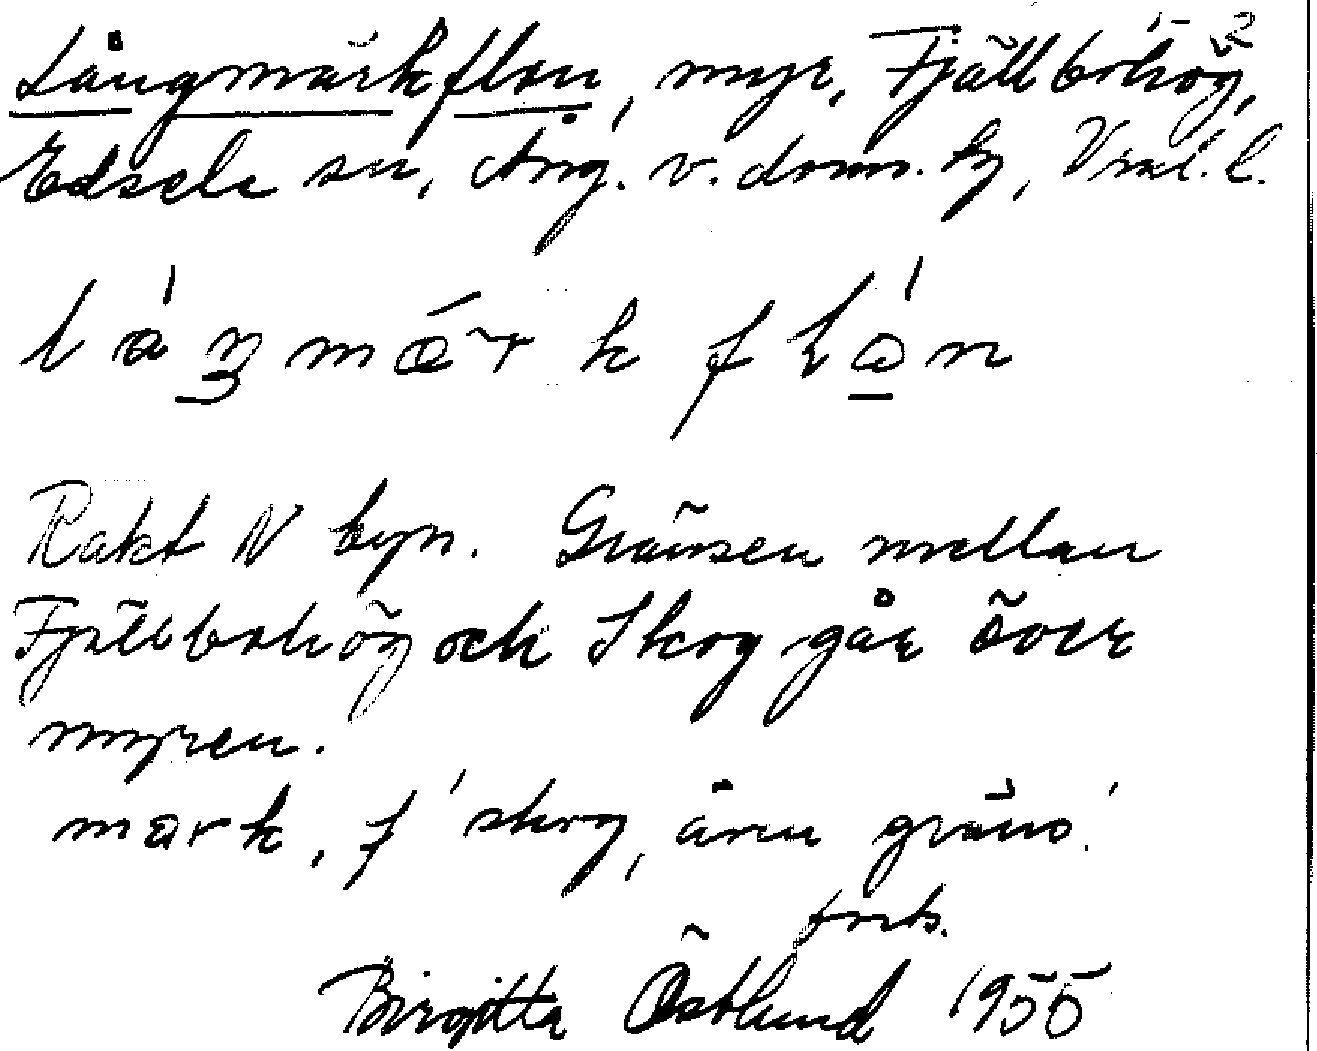 Långmarkflon, myr, Fjällbohög,
Edsele sn, Ång. v. doms. hg, Vnl. l.
lǻŋmárk flɔ́n
Rakt N byn. Gränsen mellan
Fjällbohög och Skog går över
myren.
mark, f 'skog, även gräns'
forts.
Birgitta Östlund 1955